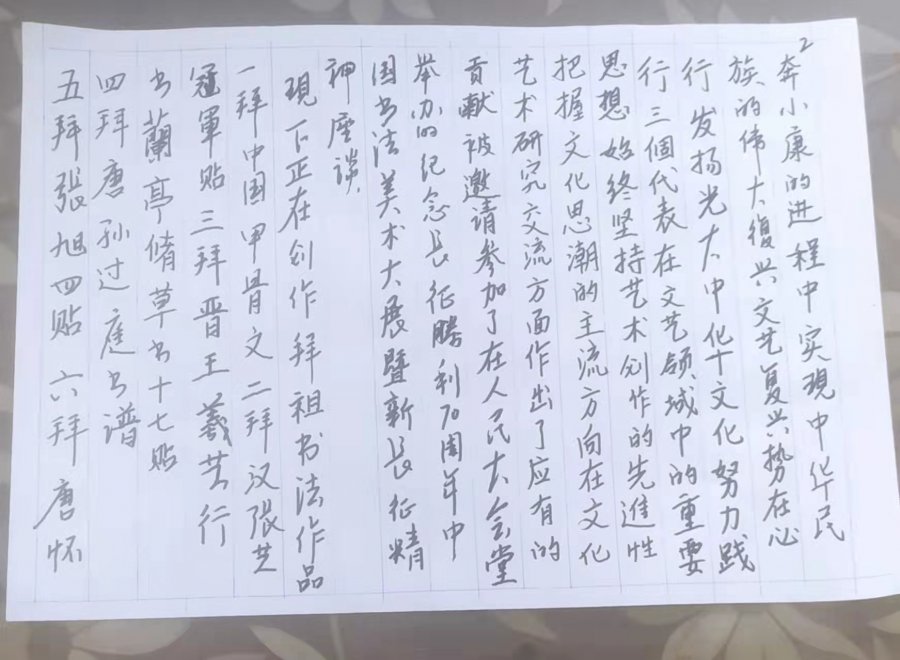 2
奔小康的进程中实現中华民
族的伟大復兴文艺复兴势在必
行发扬光大中华文化努力践
行三個代表在文艺领域中的重要
思想始终坚持艺术创作的先進性
把握文化思潮的主流方向在文化
艺术研究交流方面作出了应有的
贡献被邀請参加了在人民大会堂
举办的纪念長征勝利70周年中
国书法美术大展暨新長征精
神座談
現下正在创作拜祖书法作品
一拜中国甲骨文二拜汉張芝
冠軍贴三拜晋王羲芝行
书蘭亭脩草书十七贴
四拜唐孙过庭书谱
五拜張旭四贴六拜唐怀